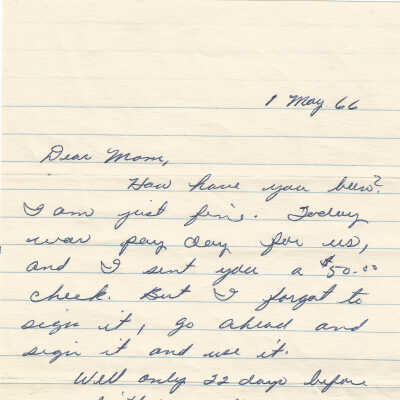 1 May 66
Dear Mom,
How have you been?
I am just fine. Today
was pay day for us,
and I sent you a $50.00
check. But I forgot to
sign it, go ahead and
sign it and use it.
Well only 22 days before